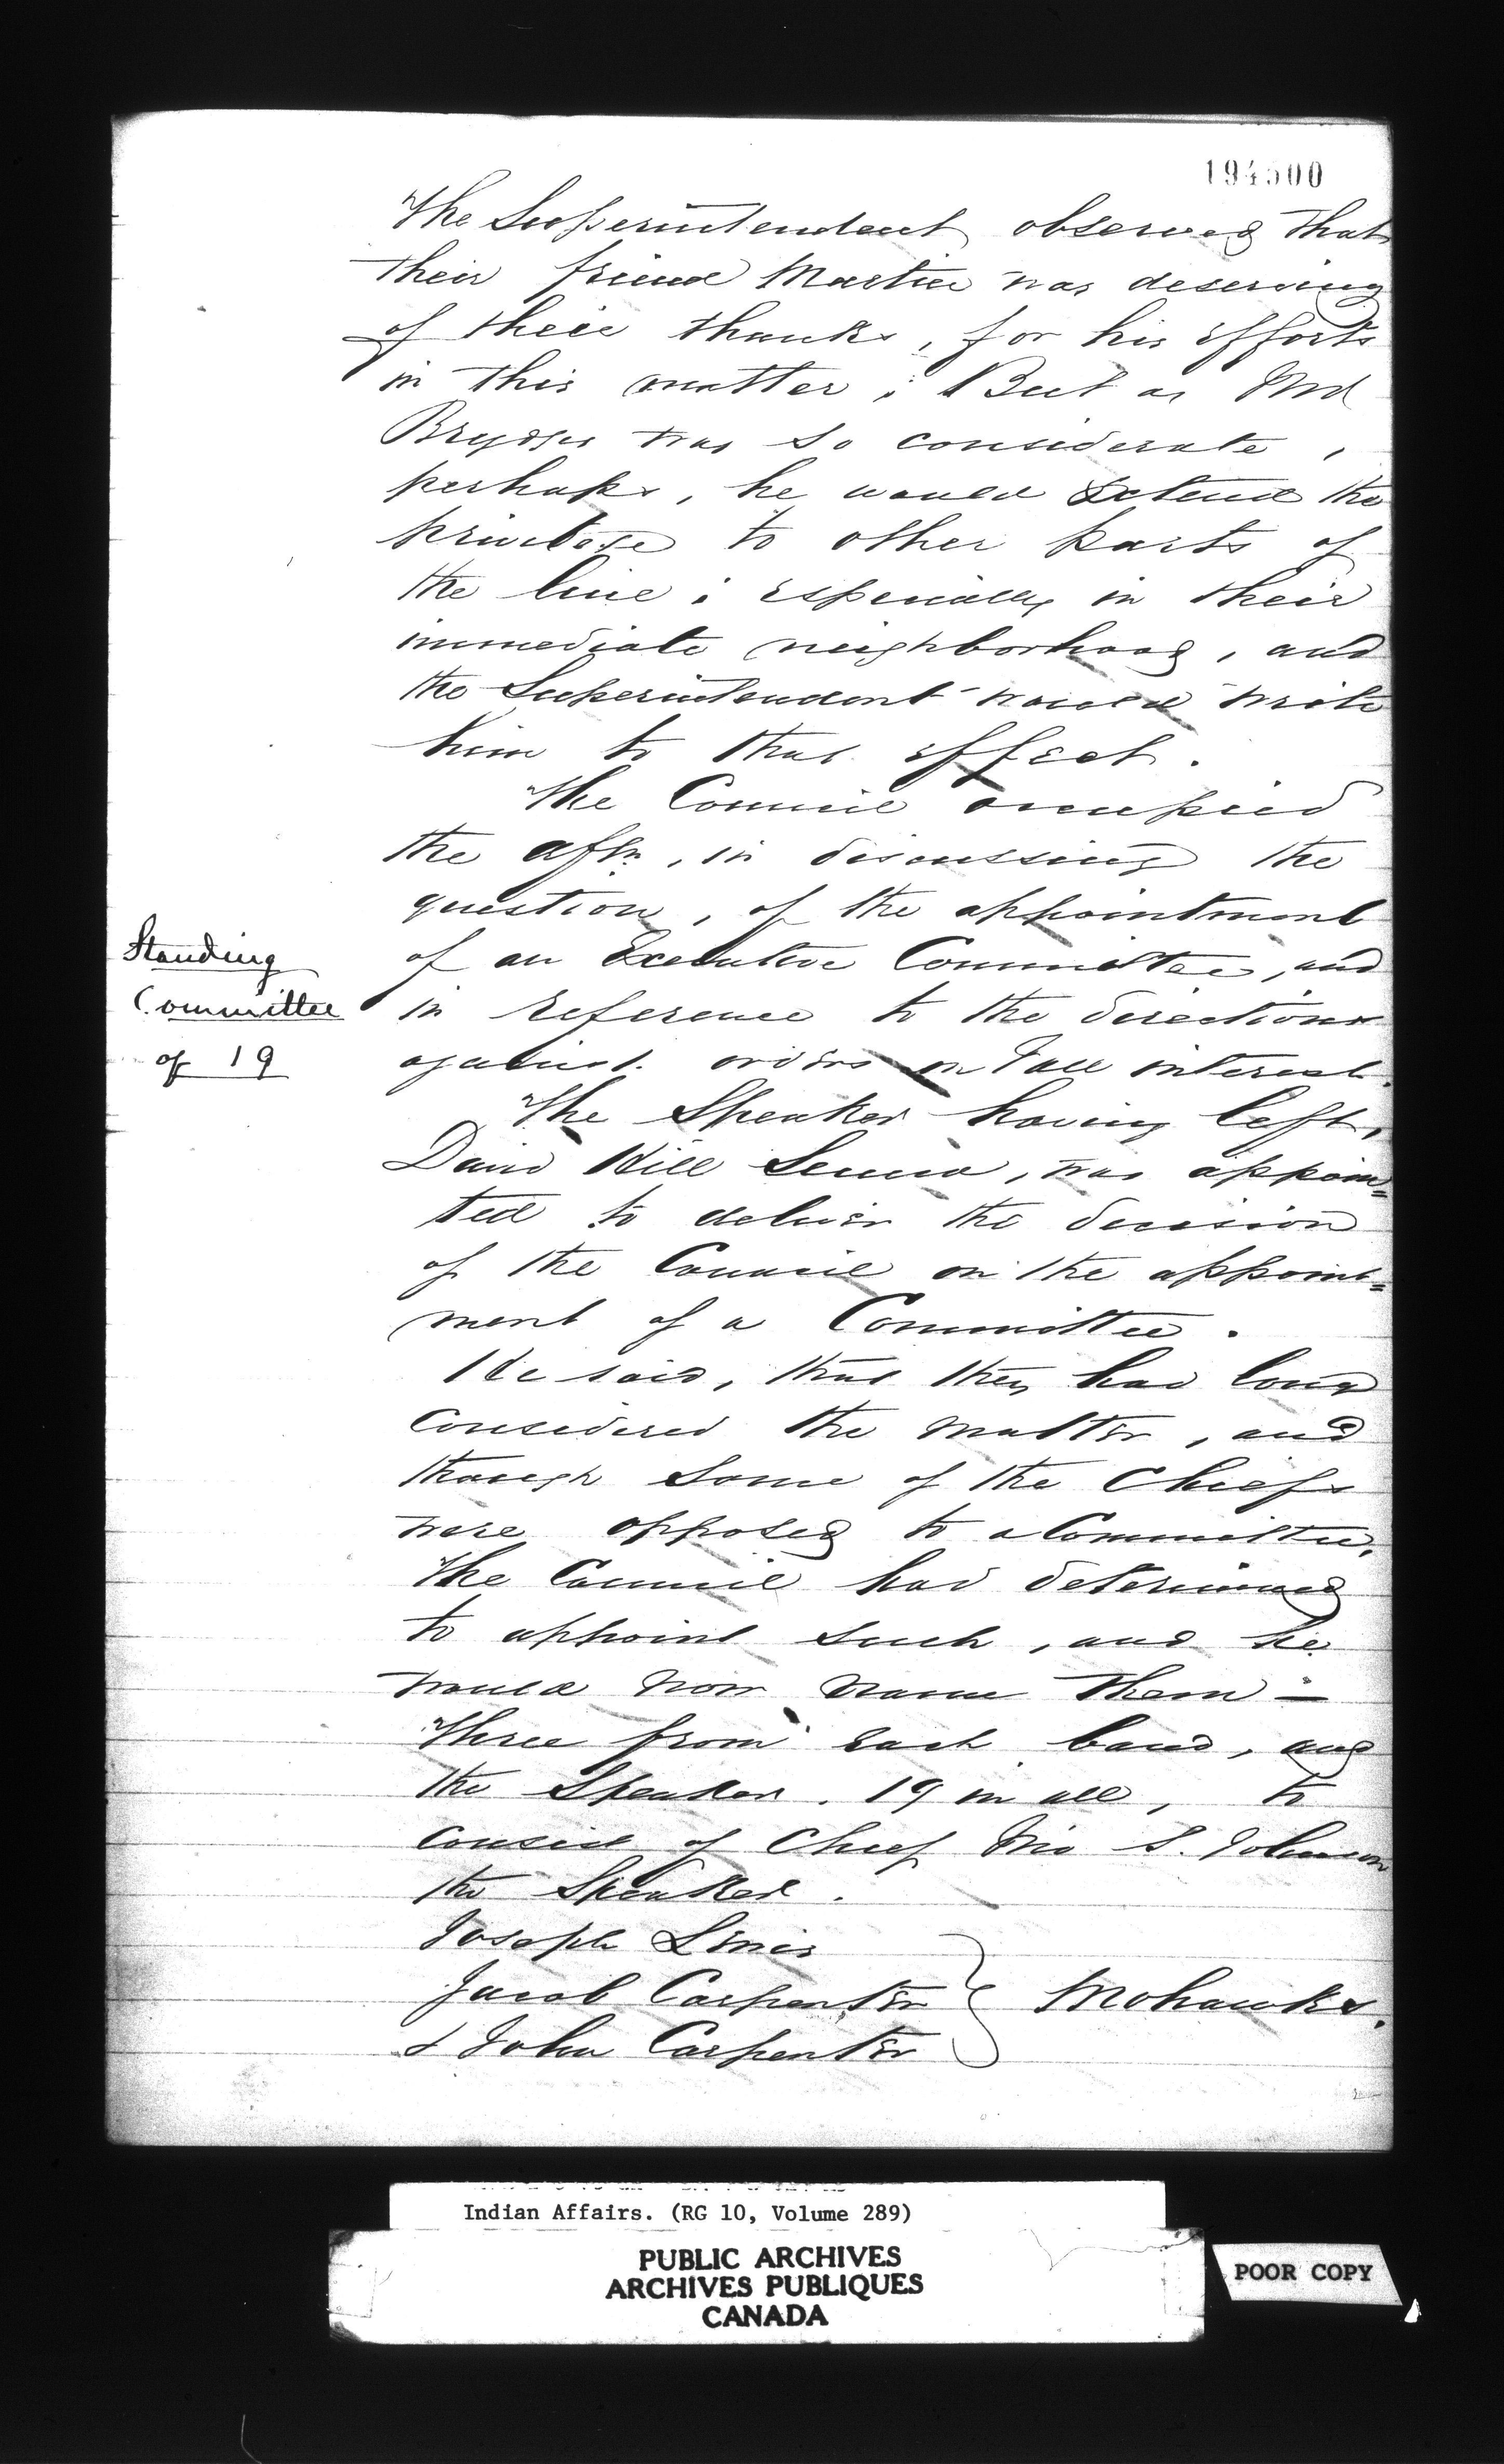 194500
The Superintendent observed that
their friend Martin was deserving
of their thanks, for his efforts
in this matter; But as
Brydges was so considerate,
perhaps, he would extend the
privilege to other parts of
the line; especially in their
immediate neighborhood, and
the Superintendent would write
him to that effect.
The Council occupied
the aftn, in discussing the
question, of the appointment
Standing
Committee
of 19
of an Executive Committee, and
in reference to the directions
against orders on Fall interest.
The Speaker having left,
David Hill Seneca, was appoin=
ted to deliver the decision
of the Council on the appoint=
ment of a Committee.
He said, that they had long
considered the matter, and
though some of the Chiefs
were opposed to a Committee,
the Council had determined
to appoint such, and he
would now name them —
Three from each band, and
the Speaker. 19 in all, to
consist of Chief Jno S. Johnson
the Speaker.
Joseph Lewis
Jacob Carpenter } Mohawks.
& John Carpenter
Indian Affairs. (RG 10, Volume 289)
PUBLIC ARCHIVES
ARCHIVES PUBLIQUES
CANADA
POOR COPY